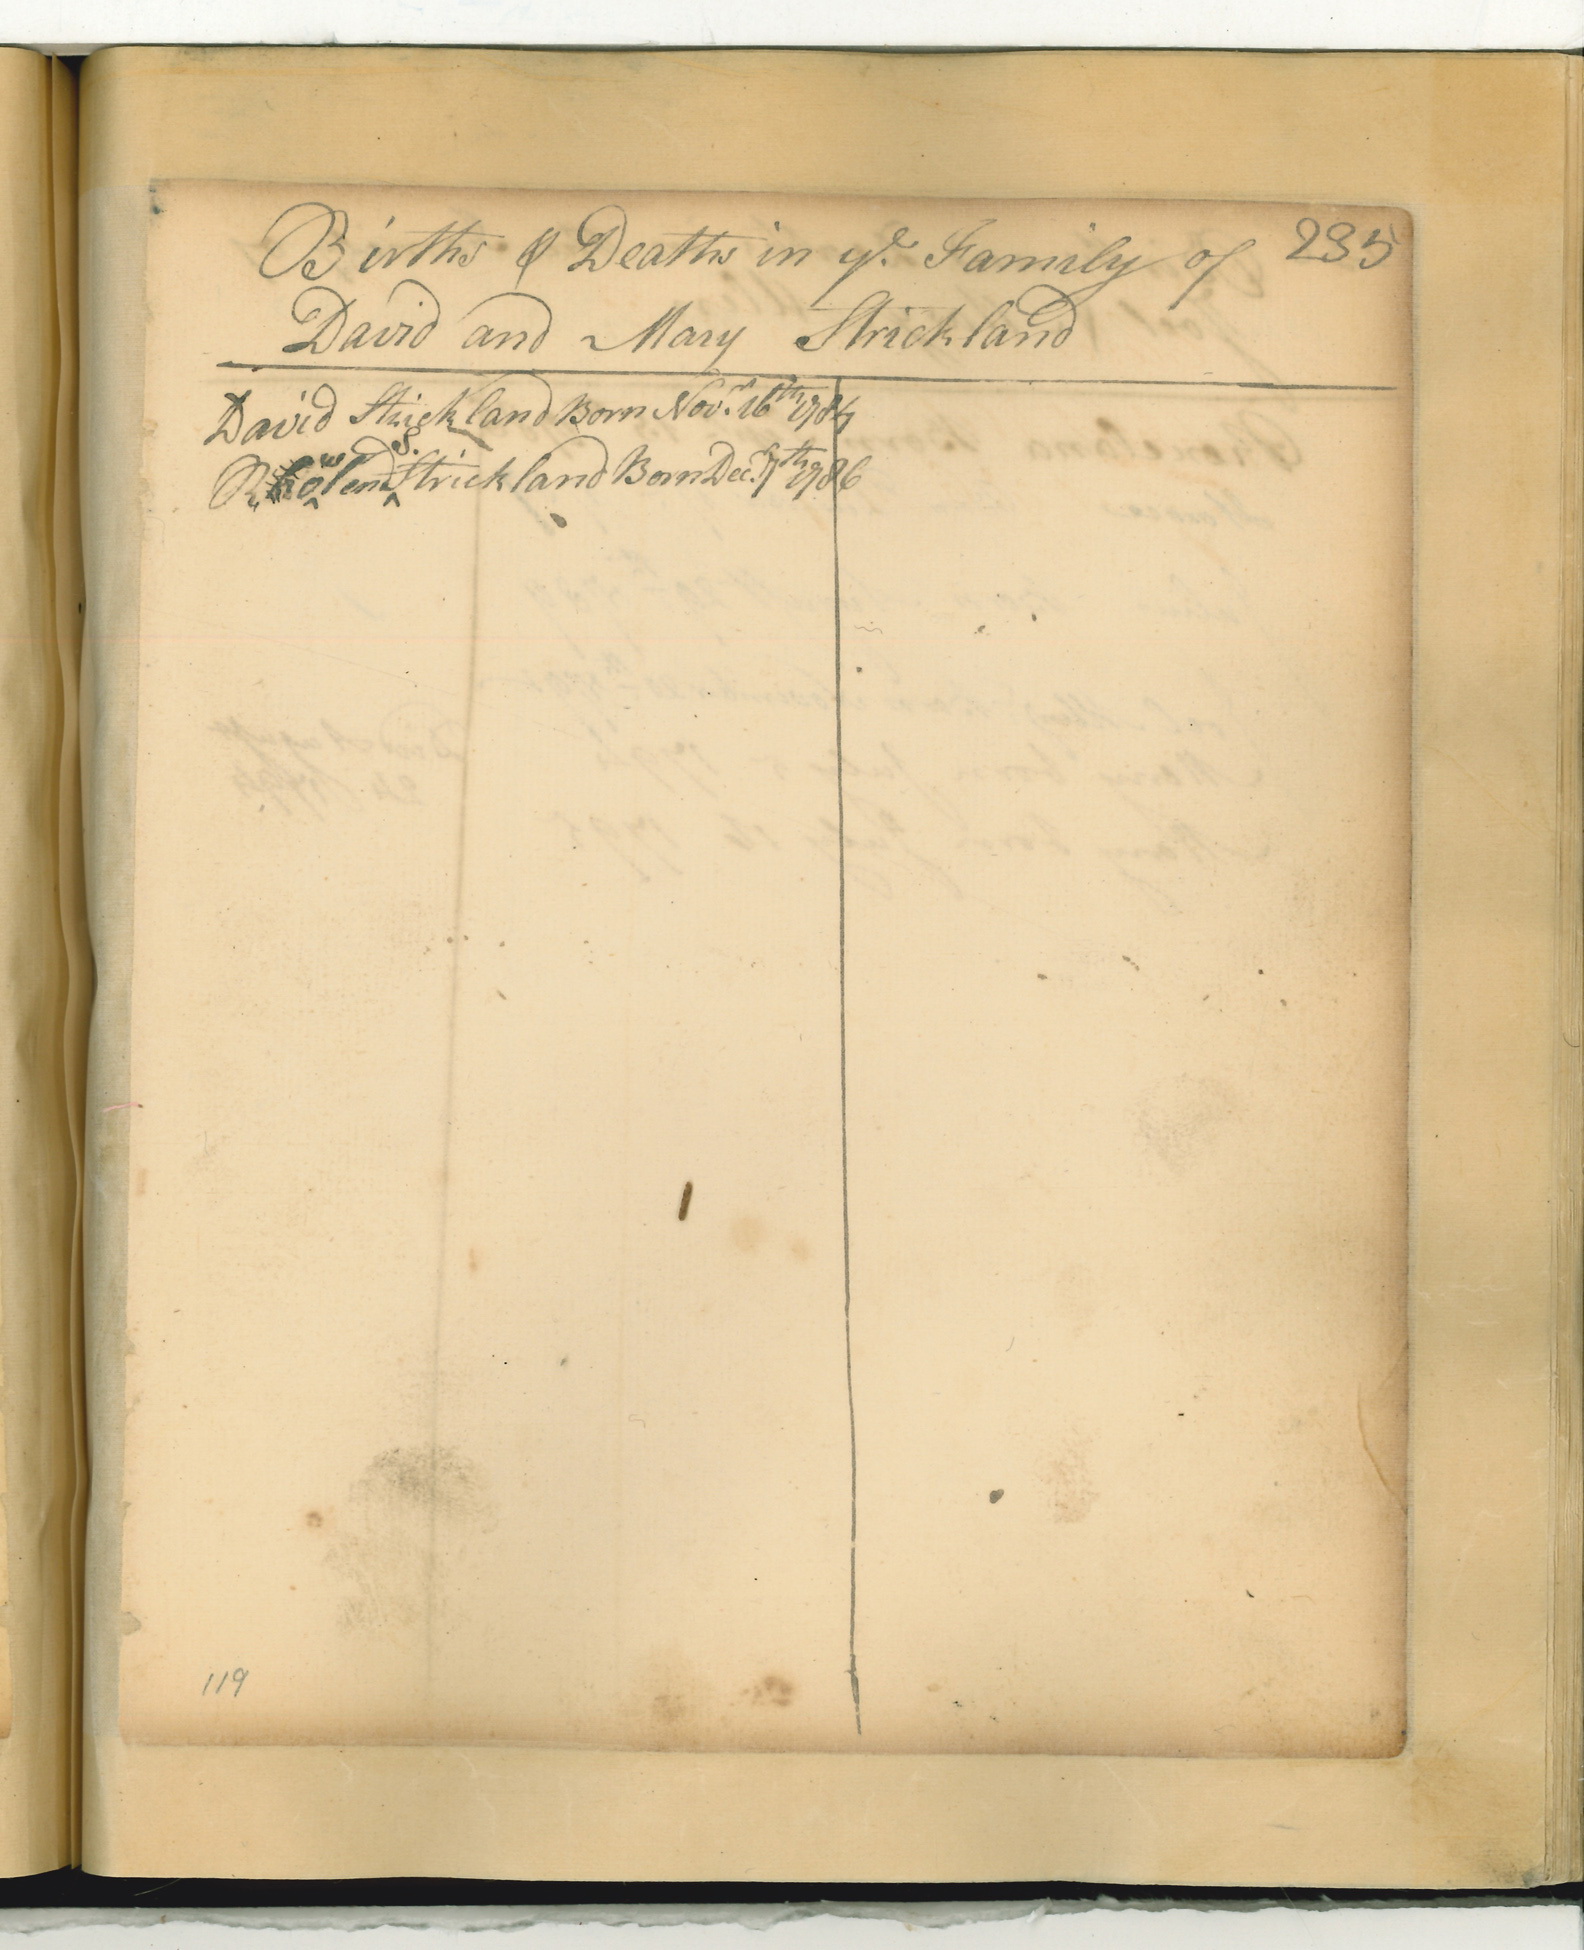 Births & Deaths in ye Family of 235
David and Mary Strickland
David Strickland Born Novr. 16th 1784
Strickland Born Decr. 7th 1786
119